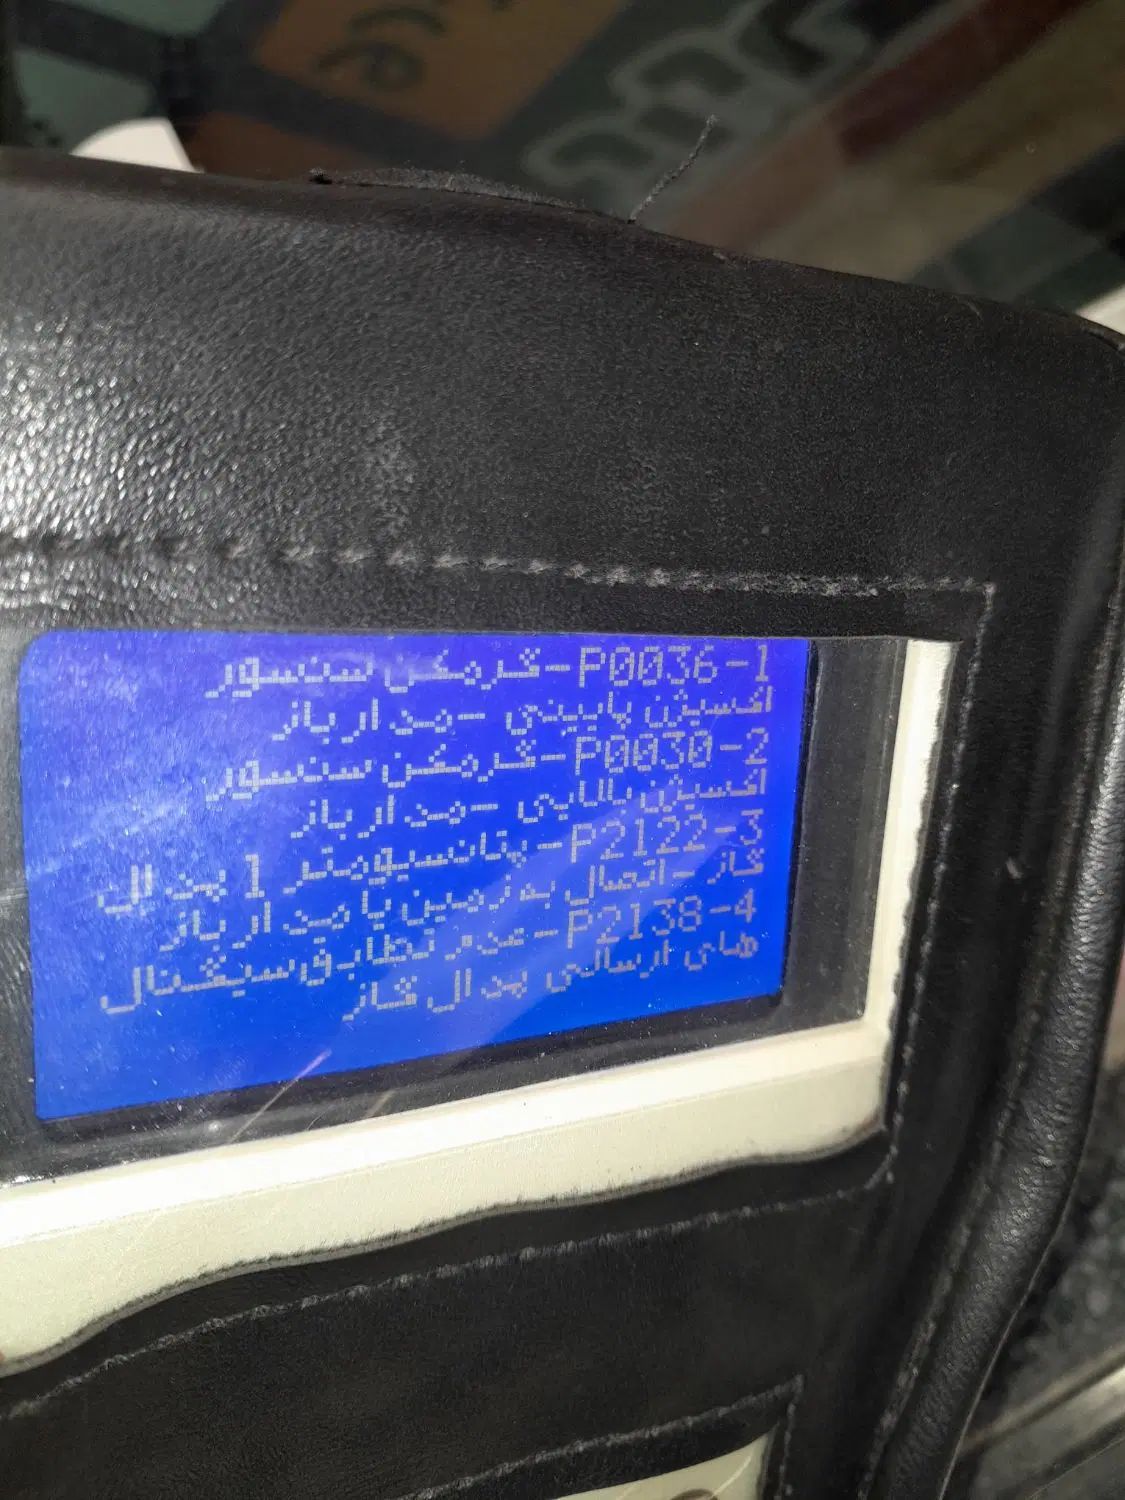 1-P0036-گرمکن سنسور
اکسیژن پایینی -مدار باز
2-P0030-گرمکن سنسور
اکسیژن بالایی -مدار باز
3-P2122-پتانسیومتر 1 پدال
گاز - اتصال به زمین یا مدار باز
4-P2138-عدم تطابق سیگنال
های ارسالی پدال گاز